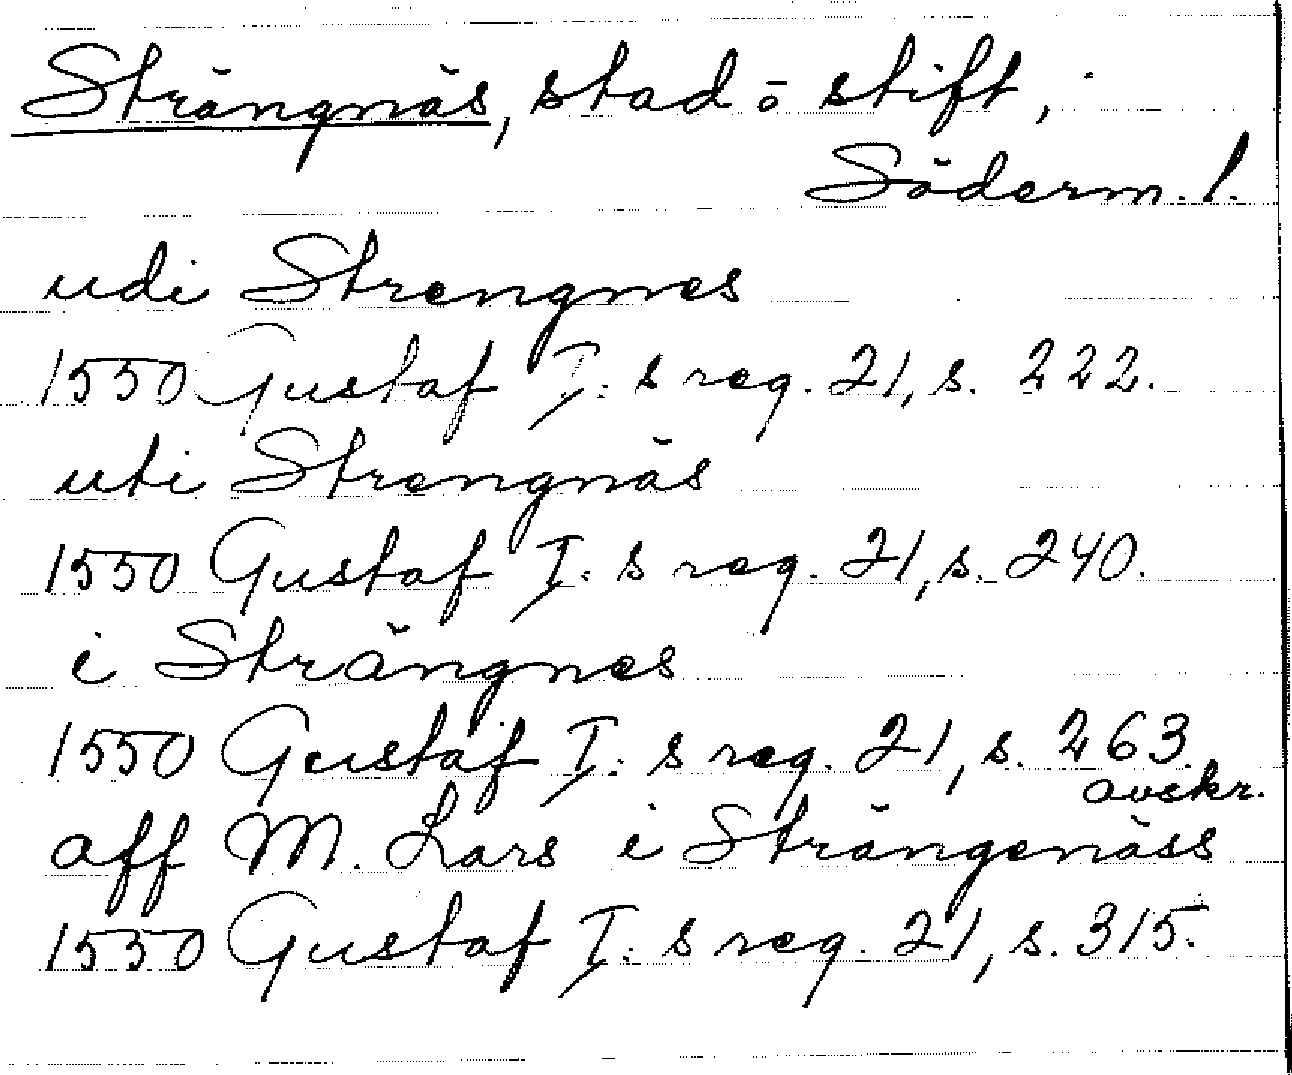 Strängnäs, stad o stift,
Söderm. l.
udi Strengnes
1550 Gustaf I: s reg. 21, s. 222.
uti Strengnäs
1550 Gustaf I: s reg. 21, s. 240.
i Strängnes
1550 Gustaf I: s reg. 21, s. 263.
avskr.
aff M. Lars i Strängenäss
1550 Gustaf I: s reg. 21, s. 315.